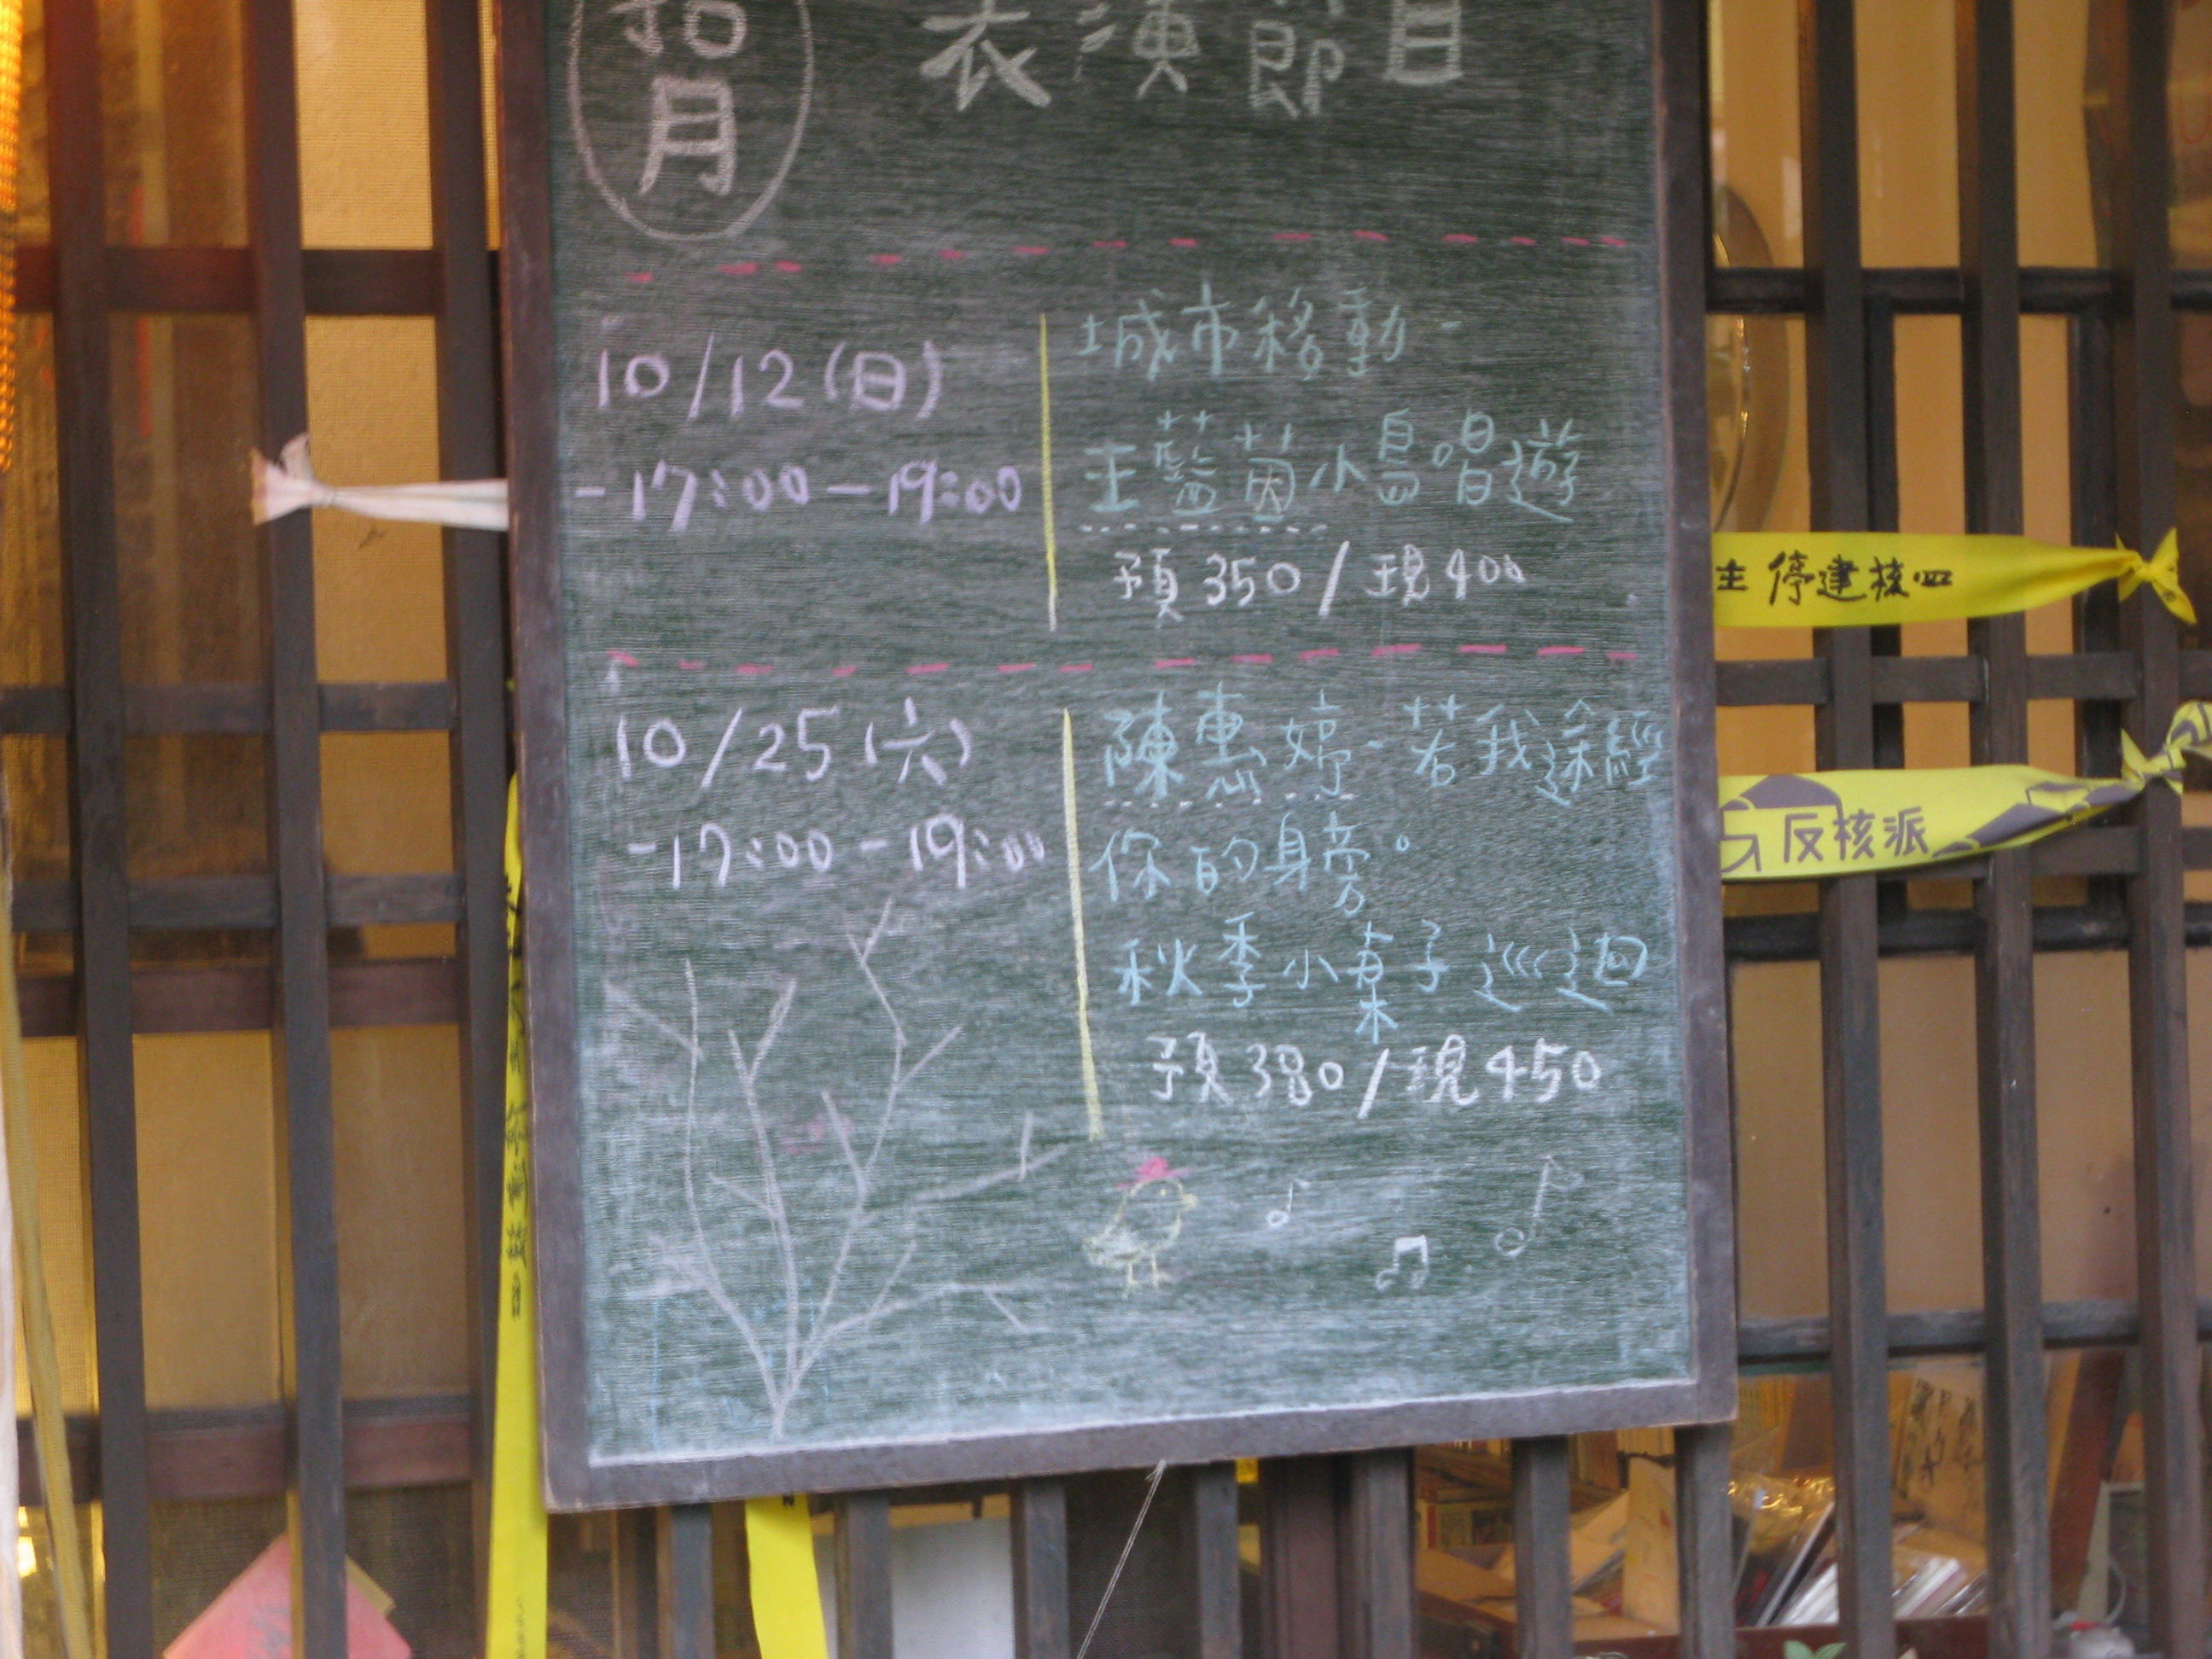 拾月
表演節目
10/12(日)
-17:00-19:00
城市移動-
王藍茵小島唱遊
預350/現400
10/25(六)
-17:00-19:00
陳惠婷-若我途經
你的身旁。
秋季小桌子巡迴
預380/現450
停建核四
反核派